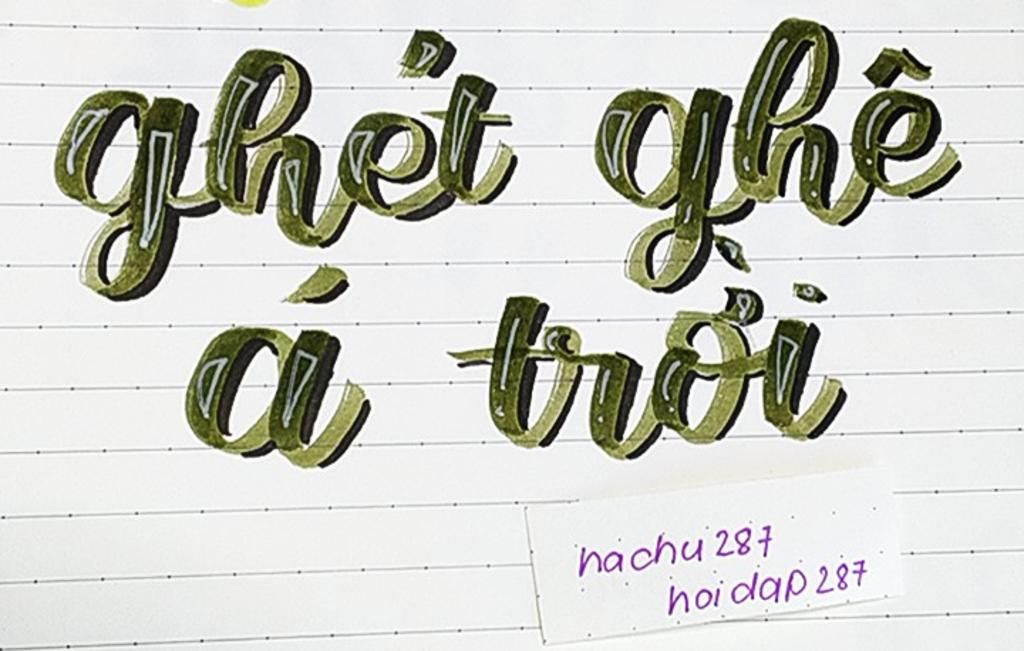 ghét ghê
á trời
nachu287
hoidap287